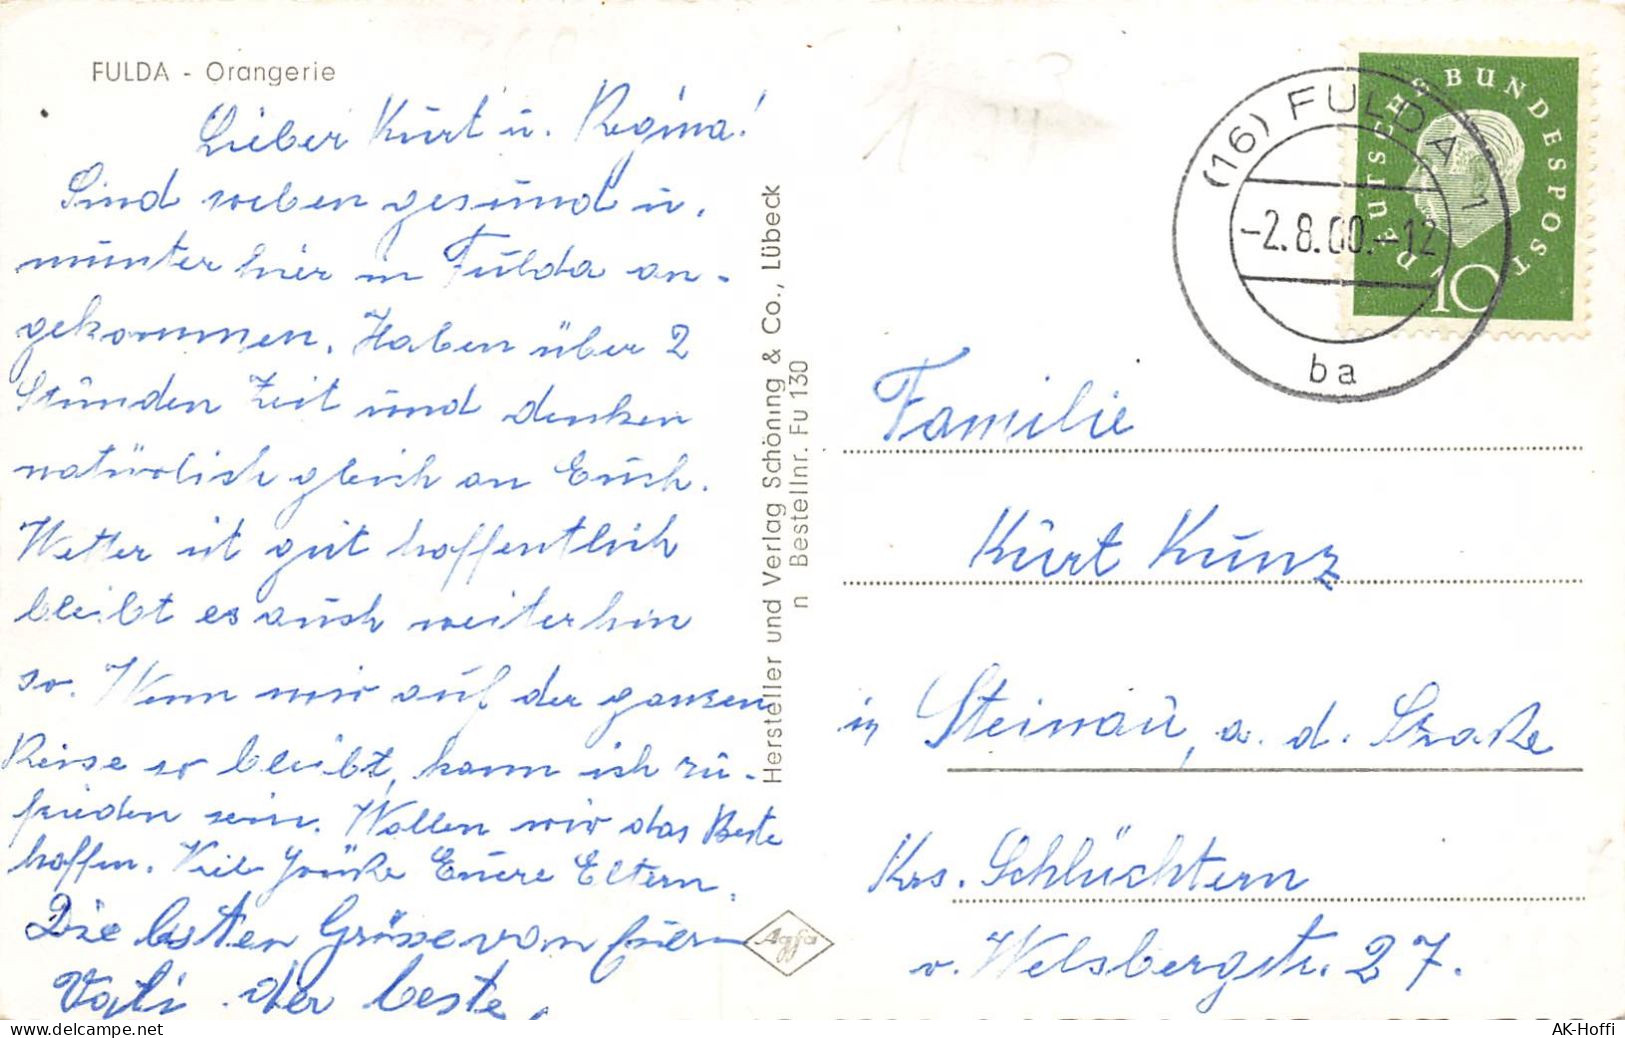 FULDA - Orangerie
Lieber Kurt u. Regina!
Sind soeben gesund u.
munter hier in Fulda an-
gekommen. Haben über 2
Stunden Zeit und denken
natürlich gleich an Euch.
Wetter ist gut hoffentlich
bleibt es auch weiterhin
so. Wenn wir auf der ganzen
Reise so bleibt, kann ich zu-
frieden sein. Wollen wir das Beste
hoffen. Viele Grüße Euere Eltern.
Die besten Grüsse von Euern
Vati der beste
Hersteller und Verlag Schöning & Co., Lübeck
n Bestellnr. Fu 130
Agfa
(16) FULDA 1
-2.8.60.-12
ba
DEUTSCHE BUNDESPOST
10
Familie
Kurt Kunz
in Steinau, a. d. Straße
Krs. Schlüchtern
v. Welsbergstr. 27.
www.delcampe.net
AK-Hoffi